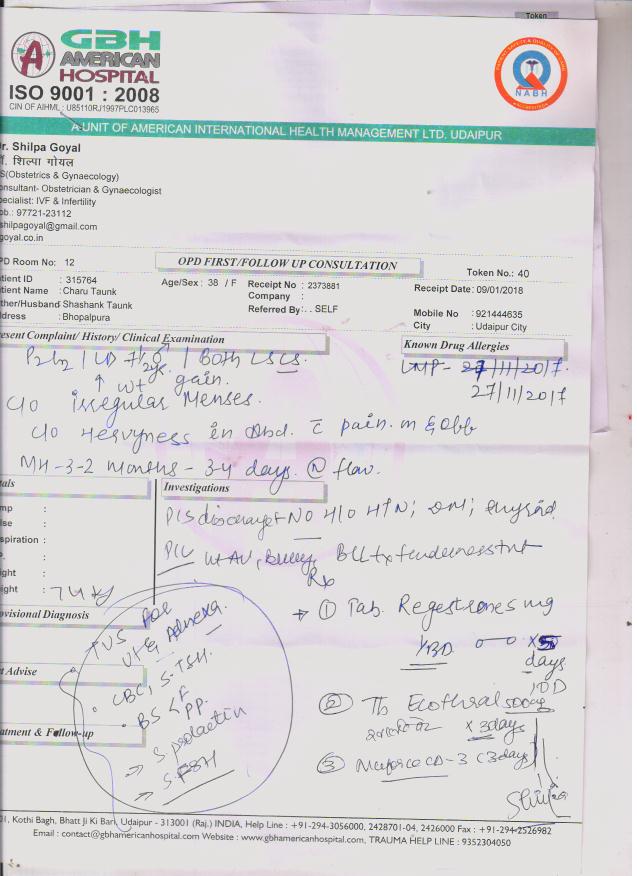 Token
GBH
AMERICAN
HOSPITAL
ISO 9001 : 2008
CIN OF AIHML : U85110RJ1997PLC013965
NABH
A UNIT OF AMERICAN INTERNATIONAL HEALTH MANAGEMENT LTD. UDAIPUR
r. Shilpa Goyal
ॉ. शिल्पा गोयल
S(Obstetrics & Gynaecology)
onsultant- Obstetrician & Gynaecologist
ecialist: IVF & Infertility
ob.: 97721-23112
shilpagoyal@gmail.com
goyal.co.in
PD Room No: 12
OPD FIRST/FOLLOW UP CONSULTATION
Token No.: 40
tient ID : 315764
Age/Sex : 38 / F
Receipt No : 2373881
Receipt Date: 09/01/2018
tient Name : Charu Taunk
Company :
ther/Husband Shashank Taunk
Referred By: . . SELF
Mobile No : 921444635
dress : Bhopalpura
City : Udaipur City
esent Complaint/ History/ Clinical Examination
Known Drug Allergies
P2L2 / LD 7 / Both LSCS.
LMP- 27/11/2017
↑ wt gain.
27/11/2017
C/o irregular Menses.
C/o Heavyness in Abd. c̄ pain. m
MH-3-2 months - 3-4 days. (N) flow.
tals
Investigations
mp :
lse :
spiration :
P. :
ight :
ight : 74 kg
P/S discharge+ No H/O HTN; DM; thyroid
P/V Ut AV, Bulky, B/L fx tenderness
Rx
ovisional Diagnosis
TVS for
Ut & Adnexa.
CBC, S.TSH.
BS F
PP.
→ S prolactin
→ S.FSH
t Advise
atment & Follow-up
→ ① Tab. Regestrone 5 mg
1 BD x 5
days
② Tb 500mg
x 3 days
③ CD-3 (3 days)
01, Kothi Bagh, Bhatt Ji Ki Bari, Udaipur - 313001 (Raj.) INDIA, Help Line : +91-294-3056000, 2428701-04, 2426000 Fax : +91-294-2526982
Email : contact@gbhamericanhospital.com Website : www.gbhamericanhospital.com, TRAUMA HELP LINE : 9352304050